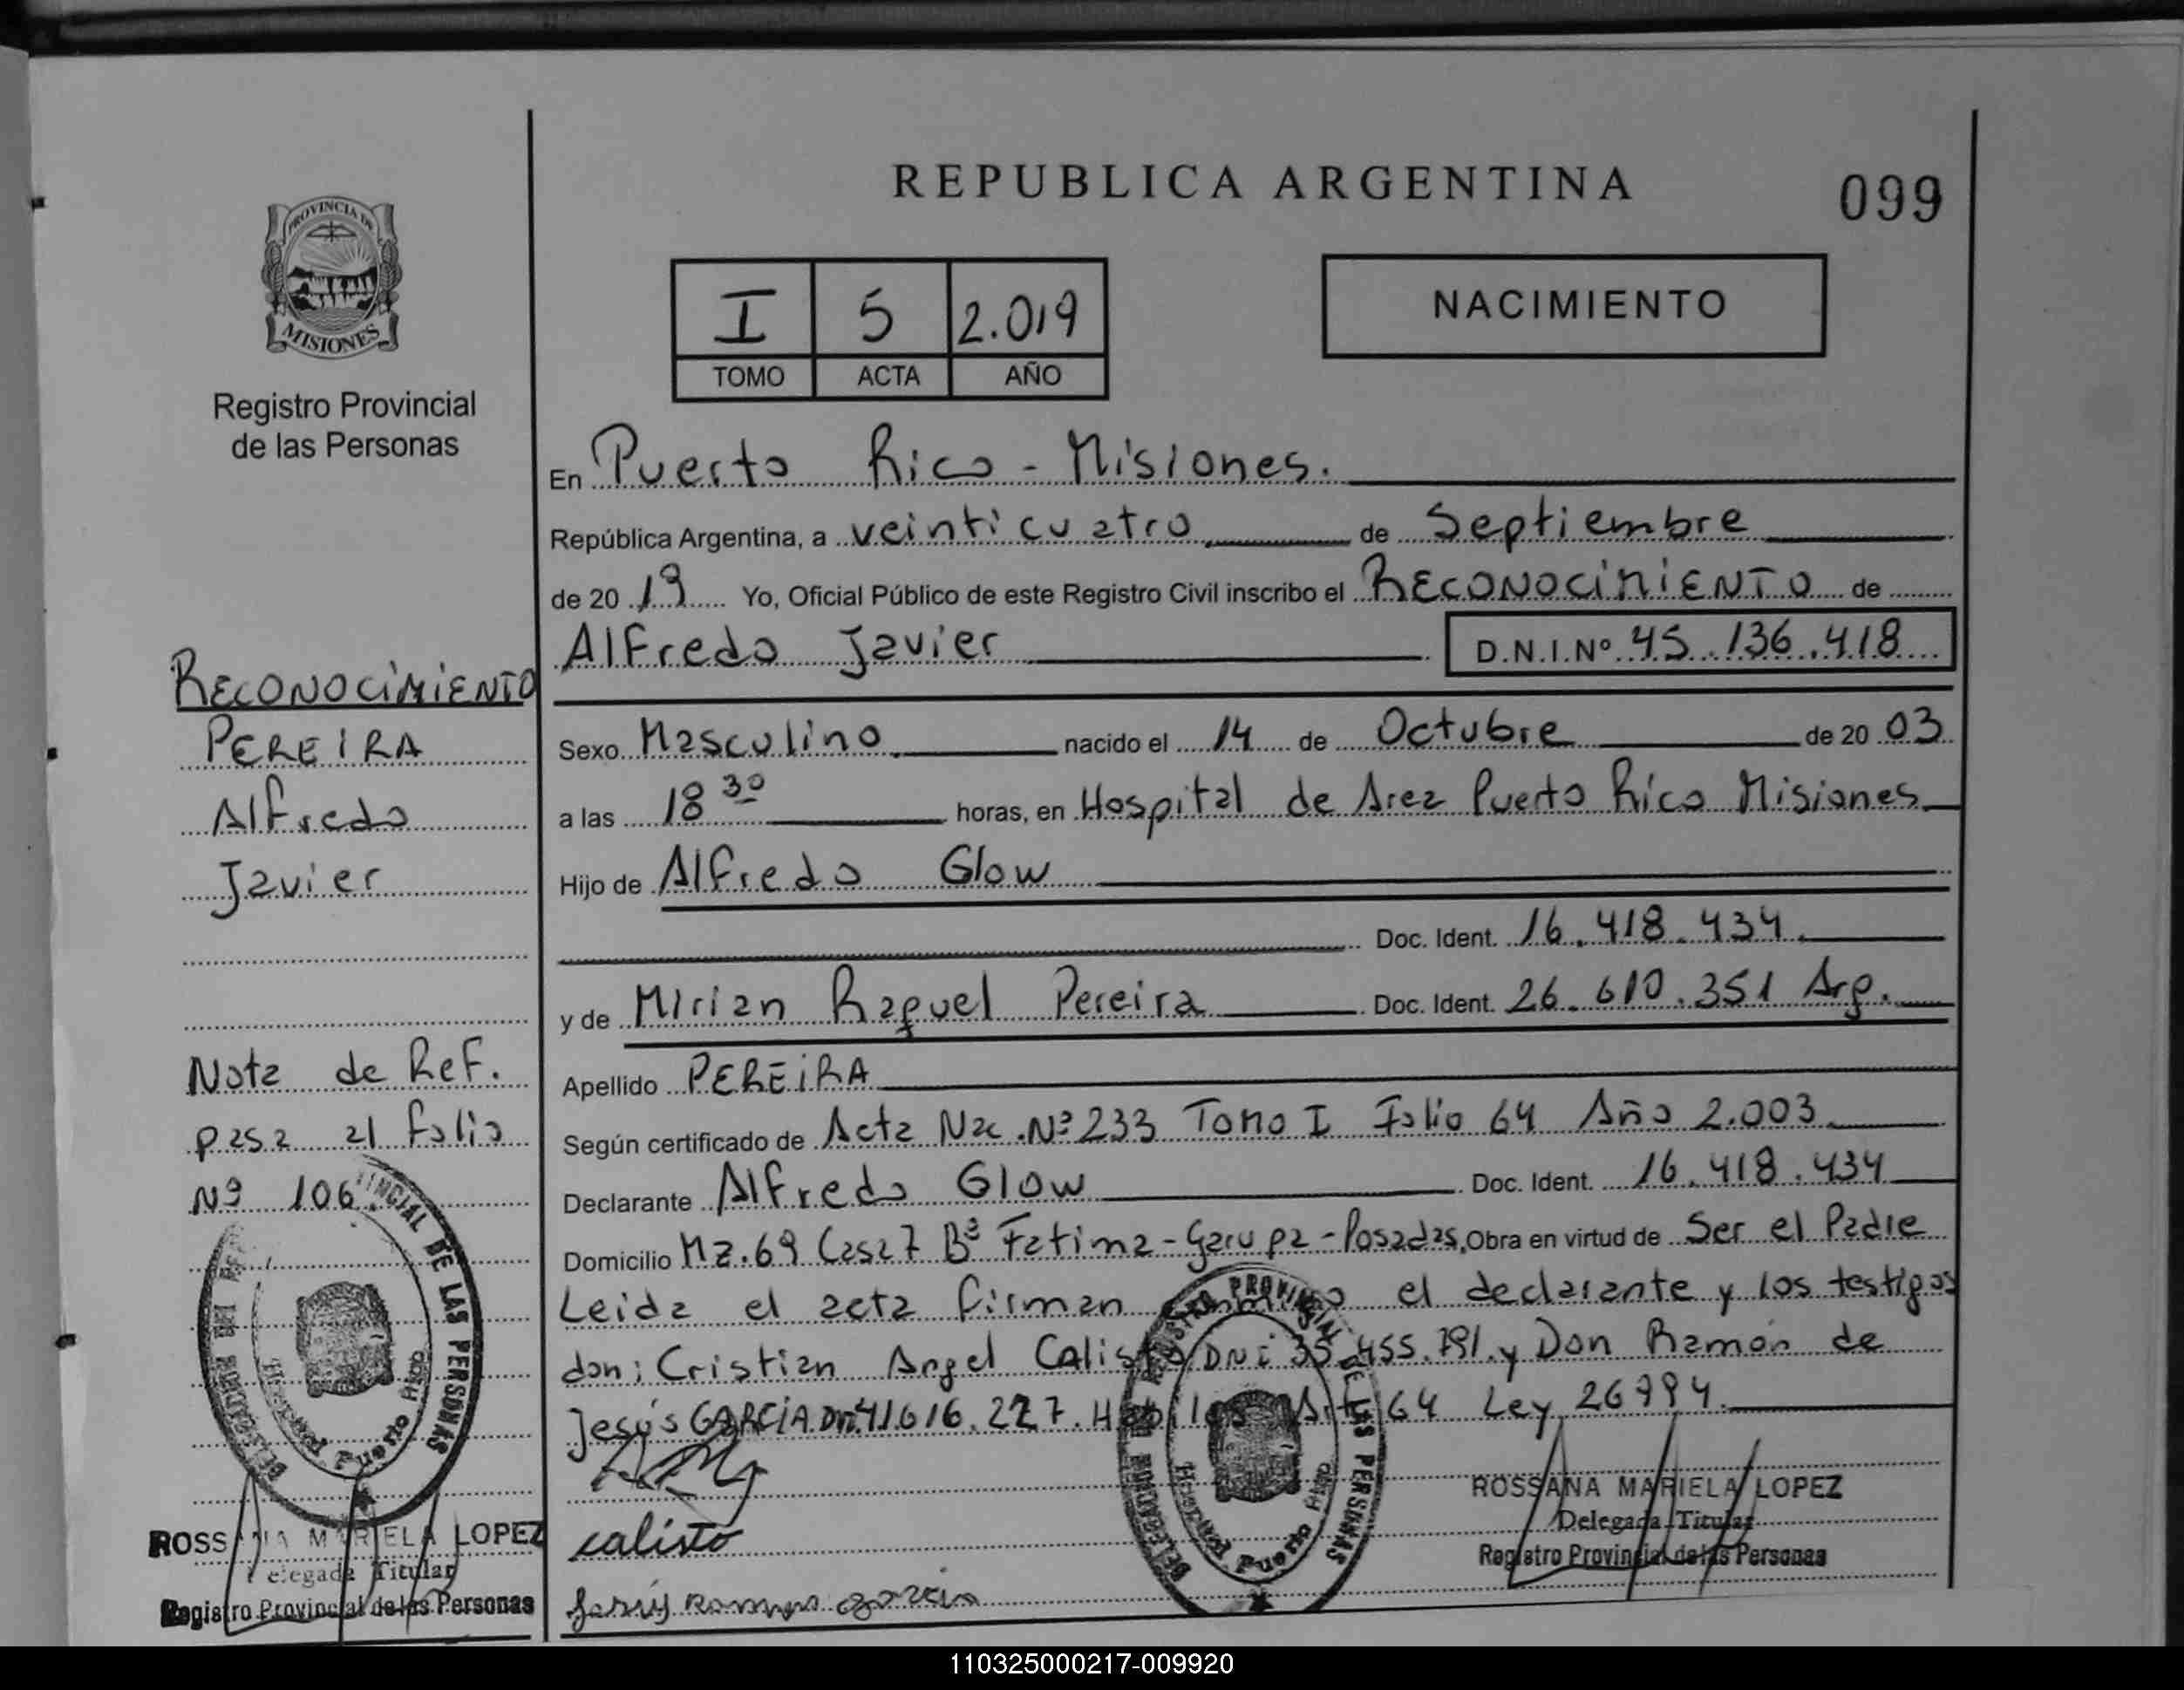 REPUBLICA ARGENTINA
099
PROVINCIA DE
MISIONES
Registro Provincial
de las Personas
I 5 2.019
TOMO ACTA AÑO
NACIMIENTO
En Puerto Rico - Misiones.
República Argentina, a veinticuatro de Septiembre
de 2019 Yo, Oficial Público de este Registro Civil inscribo el RECONOCIMIENTO de
Alfredo Javier D.N.I.Nº 45.136.418
Sexo Masculino nacido el 14 de Octubre de 2003
a las 18 30 horas, en Hospital de Area Puerto Rico Misiones
Hijo de Alfredo Glow
Doc. Ident. 16.418.434
y de Mirian Raquel Pereira Doc. Ident. 26.610.351 Arg.
Apellido PEREIRA
Según certificado de Acta Nac. Nº 233 Tomo I Folio 64 Año 2.003
Declarante Alfredo Glow Doc. Ident. 16.418.434
Domicilio Mz.69 Casa 7 Bº Fatima - Garupa - Posadas, Obra en virtud de Ser el Padre
Leida el acta firman el declarante y los testigos
don: Cristian Angel Calisto DNI y Don Ramón de
Jesús GARCIA DNI 41.616.227. Art 64 Ley 26994.
calisto
Jesús Ramon garcia
ROSSANA MARIELA LOPEZ
Delegada Titular
Registro Provincial de las Personas
RECONOCIMIENTO
PEREIRA
Alfredo
Javier
Nota de Ref.
pasa al folio
Nº 106
PROVINCIAL DE LAS PERSONAS
Puerto Rico
ROSSANA MARIELA LOPEZ
Delegada Titular
Registro Provincial de las Personas
110325000217-009920